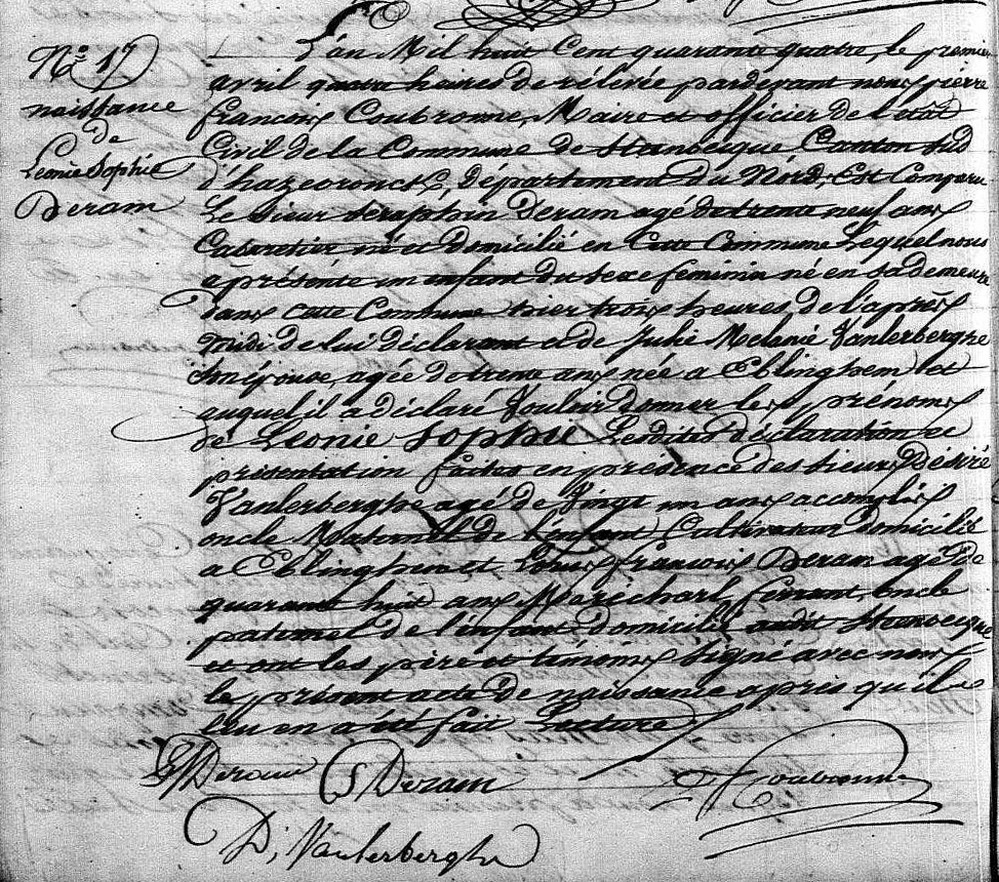 N.° 17
naissance
de
Leonie Sophie
Deram
L'an Mil huit Cent quarante quatre, le premier
avril quatre heures de rélevée pardevant nous pierre
francois Coubronne, Maire et officier de l'etat
Civil de la Commune de Steenbecque Canton sud
d'hazebrouck, Département du Nord, Est Comparu
Le sieur seraphin Deram agé de trente neuf ans
Cabaretier né et domicilié en Cette Commune Lequel nous
a présenté un enfant du sexe feminin né en sa demeure
dans cette Commune hier trois heures de l'après
midi de lui déclarant et de Julie Melanie Vanlerberghe
son épouse, agée de trente ans née a Eblinghem et
auquel il a déclaré Vouloir donner les prénoms
de Leonie Sophie Lesdites déclaration et
présentation faites en presence des sieurs Désiré
Vanlerberghe agé de Vingt un ans accomplis
oncle Maternel de l'enfant Cultivateur Domicilié
a Eblinghem et Louis francois Deram agé De
quarante huit ans Maréchal ferrant, oncle
paternel de l'enfant domicilié audit Steenbecque
et ont les père et témoins signé avec nous
le présent acte de naissance après qu'il
leu en a été fait Lecture
Deram S Deram Coubronne
D, Vanlerberghe